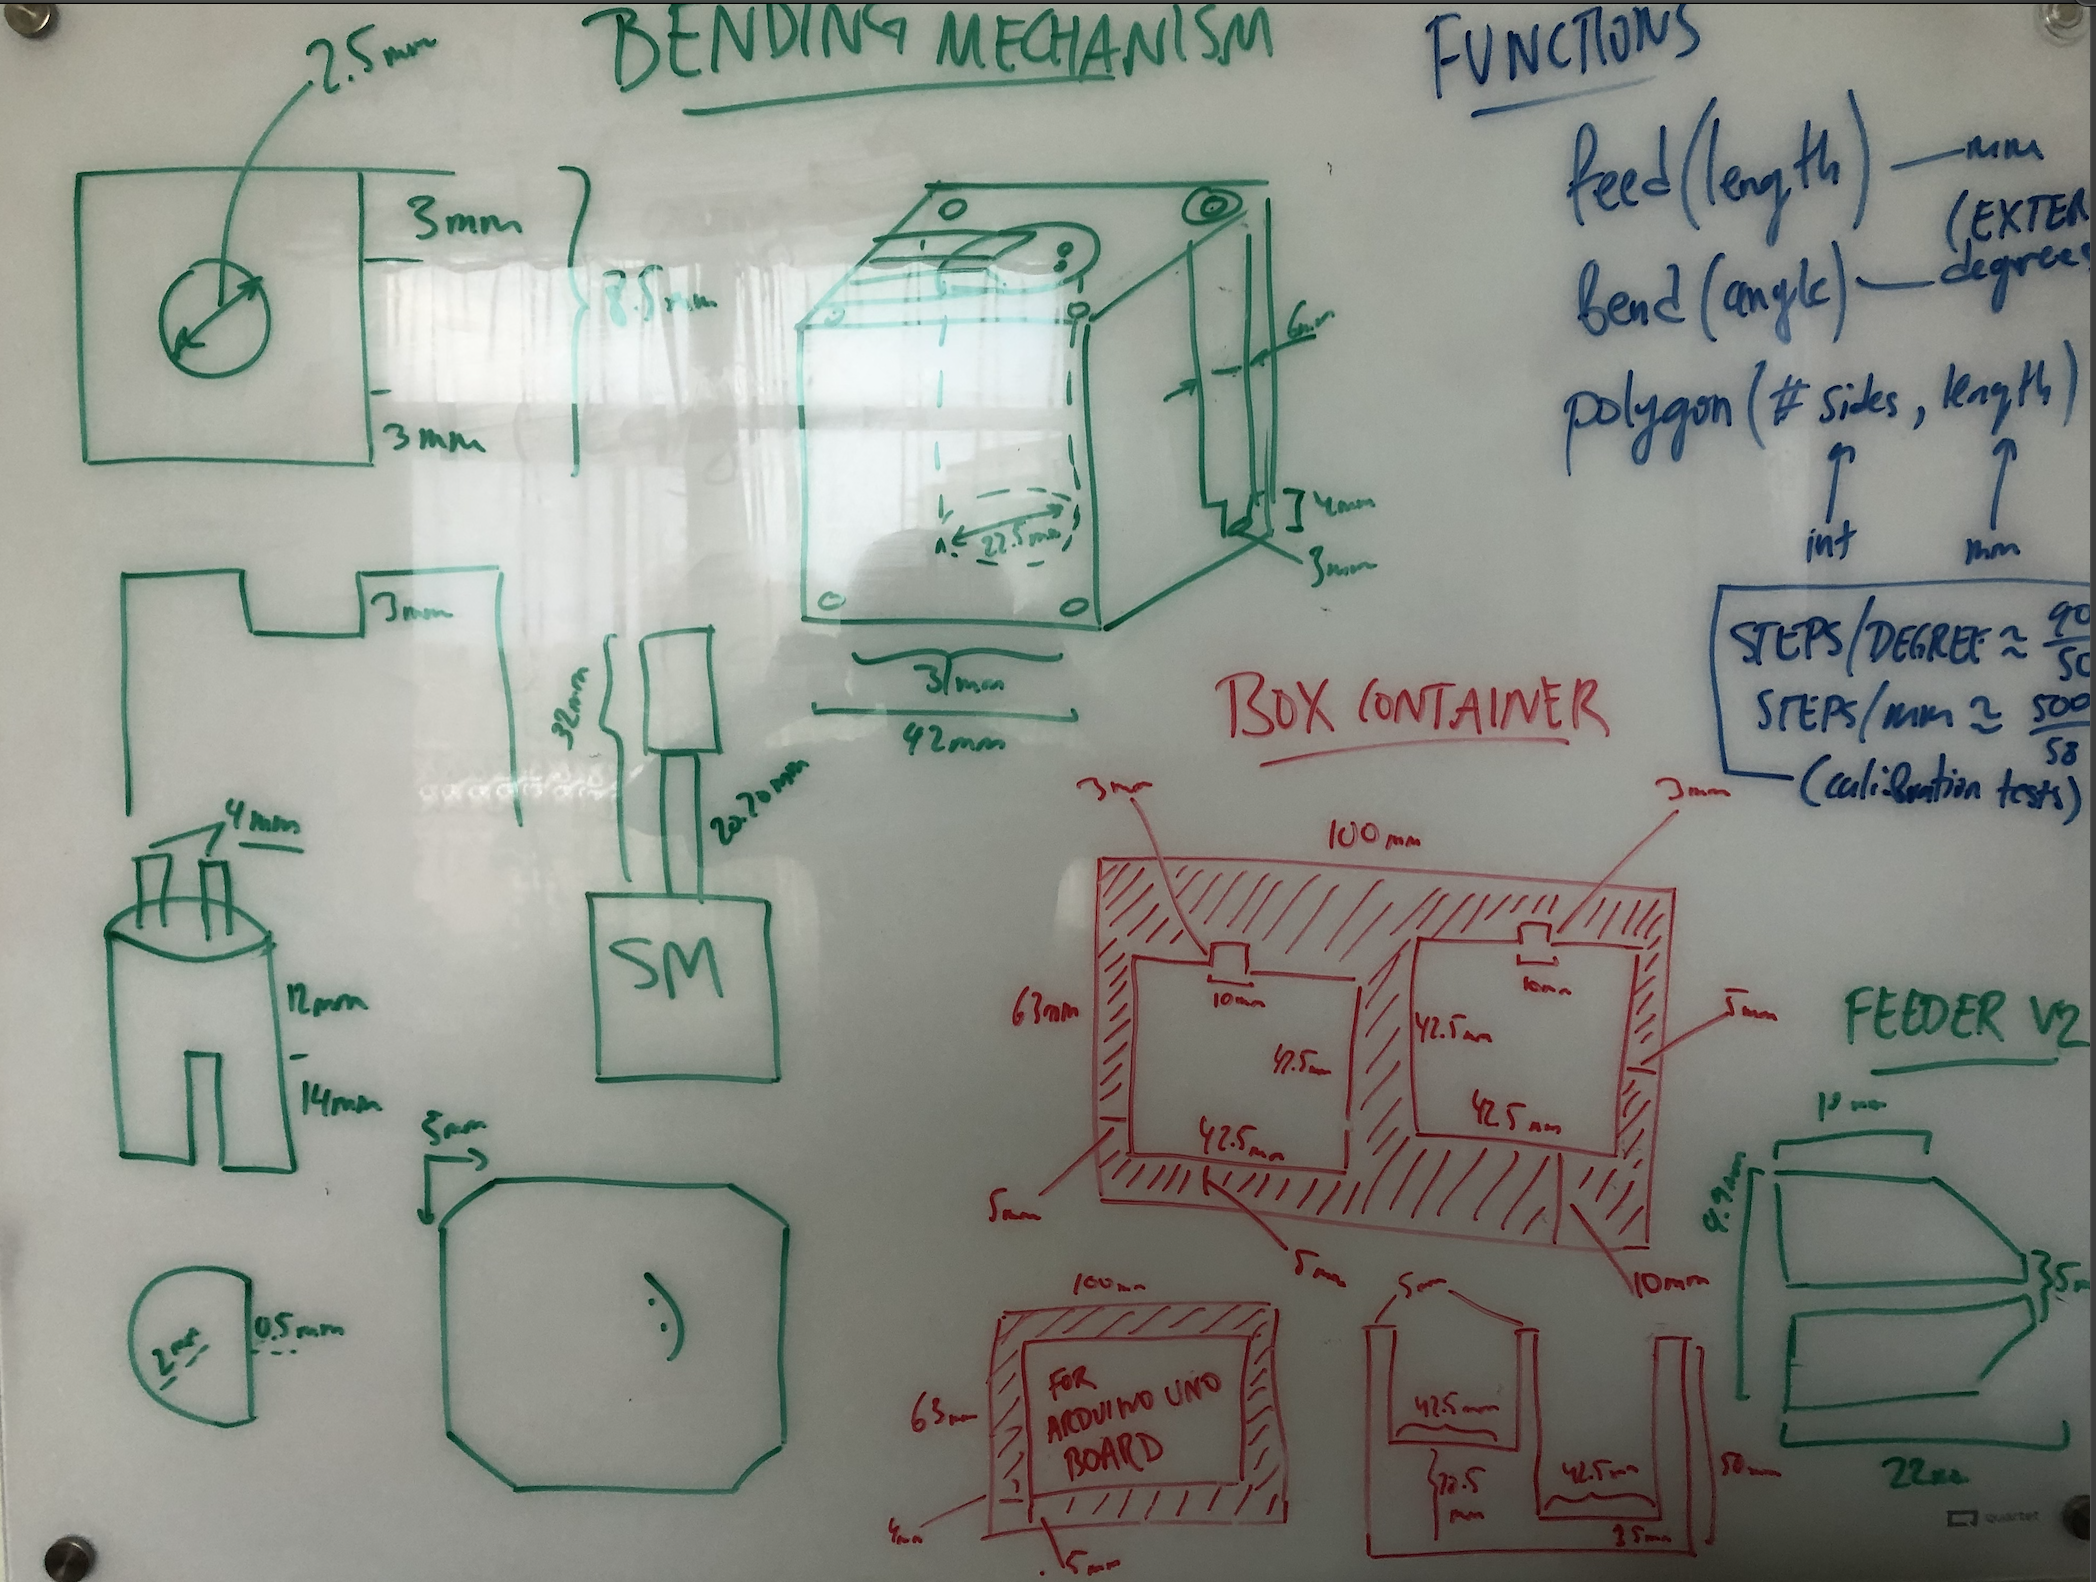 BENDING MECHANISM
2.5mm
3mm
8.5mm
3mm
6mm
4mm
3mm
22.5mm
31mm
42mm
3mm
32mm
20.20mm
SM
4mm
12mm
14mm
5mm
2mm
0.5mm
FUNCTIONS
feed (length) — mm
(EXTER
bend (angle) — degrees
polygon (# sides, length)
int
mm
STEPS/DEGREE ≈ 90/50
STEPS/mm ≈ 500/58
(calibration tests)
BOX CONTAINER
3mm
3mm
100mm
63mm
10mm
10mm
42.5mm
42.5mm
5mm
42.5mm
42.5mm
5mm
5mm
10mm
100mm
63mm
FOR
ARDUINO UNO
BOARD
4mm
5mm
5mm
42.5mm
42.5mm
50mm
3.5mm
FEEDER V2
10mm
9.9mm
5m
22mm
quartet